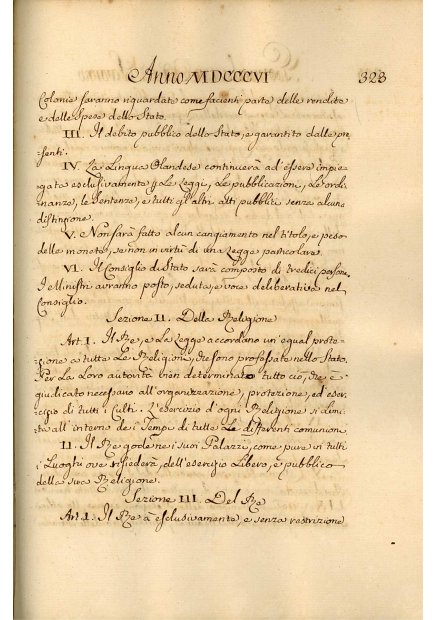 Anno MDCCCVI 323
Colonie saranno riguardate come facienti parte delle rendite
e delle spese dello Stato.
III. Il debito pubblico dello Stato, e garantito dalle pre-
senti.
IV. La Lingua Olandese continuerà ad essere impie-
gata esclusivamente p le Leggi, Le pubblicazioni, Le ordi-
nanze, le sentenze, e tutti gl'altri atti pubblici senza alcuna
distinzione.
V. Non sarà fatto alcun cangiamento nel titolo, e peso
delle monete, se non in virtù di una Legge particolare.
VI. Il Consiglio di Stato sarà composto di tredici persone,
I Ministri avranno posto, seduta, e voce deliberativa nel
Consiglio.
Sezione II. Della Religione
Art. I. Il Re, e La Legge accordano un'equal prote-
zione a tutte Le Religioni, che sono professate nello Stato.
Per La Loro autorità vien determinato tutto ciò, che è
giudicato necessario all'organizzazione, protezione, ed eser-
cizio di tutti i culti. L'esercizio d'ogni Religione si limi-
ta all'interno de i Tempi di tutte Le differenti comunioni
II. Il Re gode ne i suoi Palazzi, come pure in tutti
i Luoghi ove risiederà, dell'esercizio Libero, e pubblico
della sua Religione.
Sezione III. Del Re
Art. I. Il Re à esclusivamente, e senza restrizione